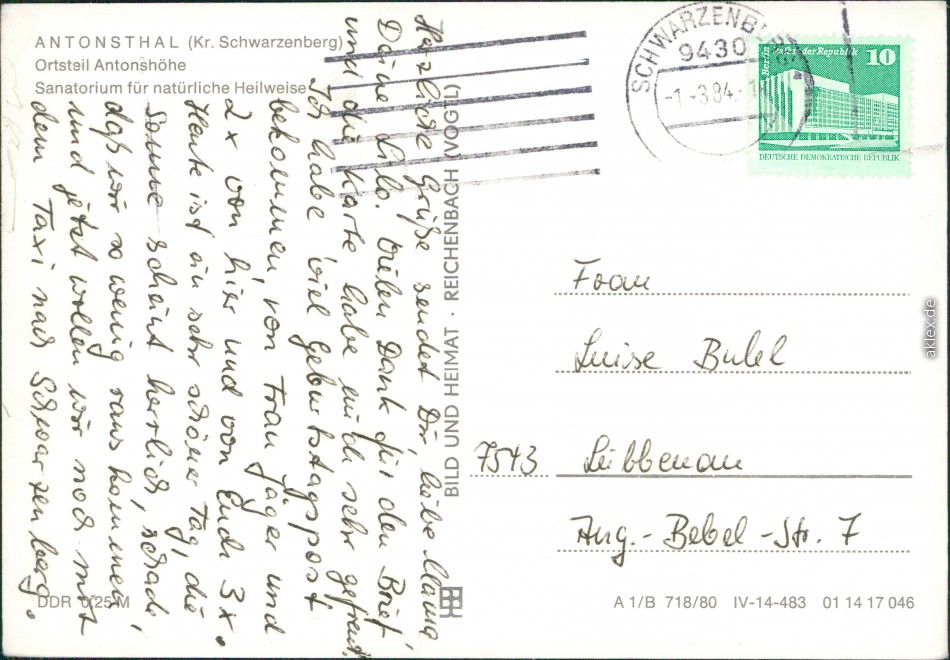 ANTONSTHAL (Kr. Schwarzenberg)
Ortsteil Antonshöhe
Sanatorium für natürliche Heilweise
Herzliche Grüße sendet Dir, liebe Mama
Deine Lilo. Vielen Dank für den Brief,
und die Karte, habe mich sehr gefreut.
Ich habe viel Geburtstagspost
bekommen, von Frau Jäger und
2 x von hier und von Ende 3x.
Heute ist ein sehr schöner Tag, die
Sonne scheint herrlich, schade,
daß wir so wenig raus kommen,
und jetzt wollen wir noch mit
dem Taxi nach Schwarzenberg.
BILD UND HEIMAT · REICHENBACH (VOGTL)
SCHWARZENBERG
9430
-1.-3.84.-1
Berlin Palast der Republik 10
DEUTSCHE DEMOKRATISCHE REPUBLIK
Frau
Luise
7543 Lübbenau
Aug.-Bebel-Str. 7
DDR 0,25 M
A 1/B 718/80 IV-14-483 01 14 17 046
aklex.de